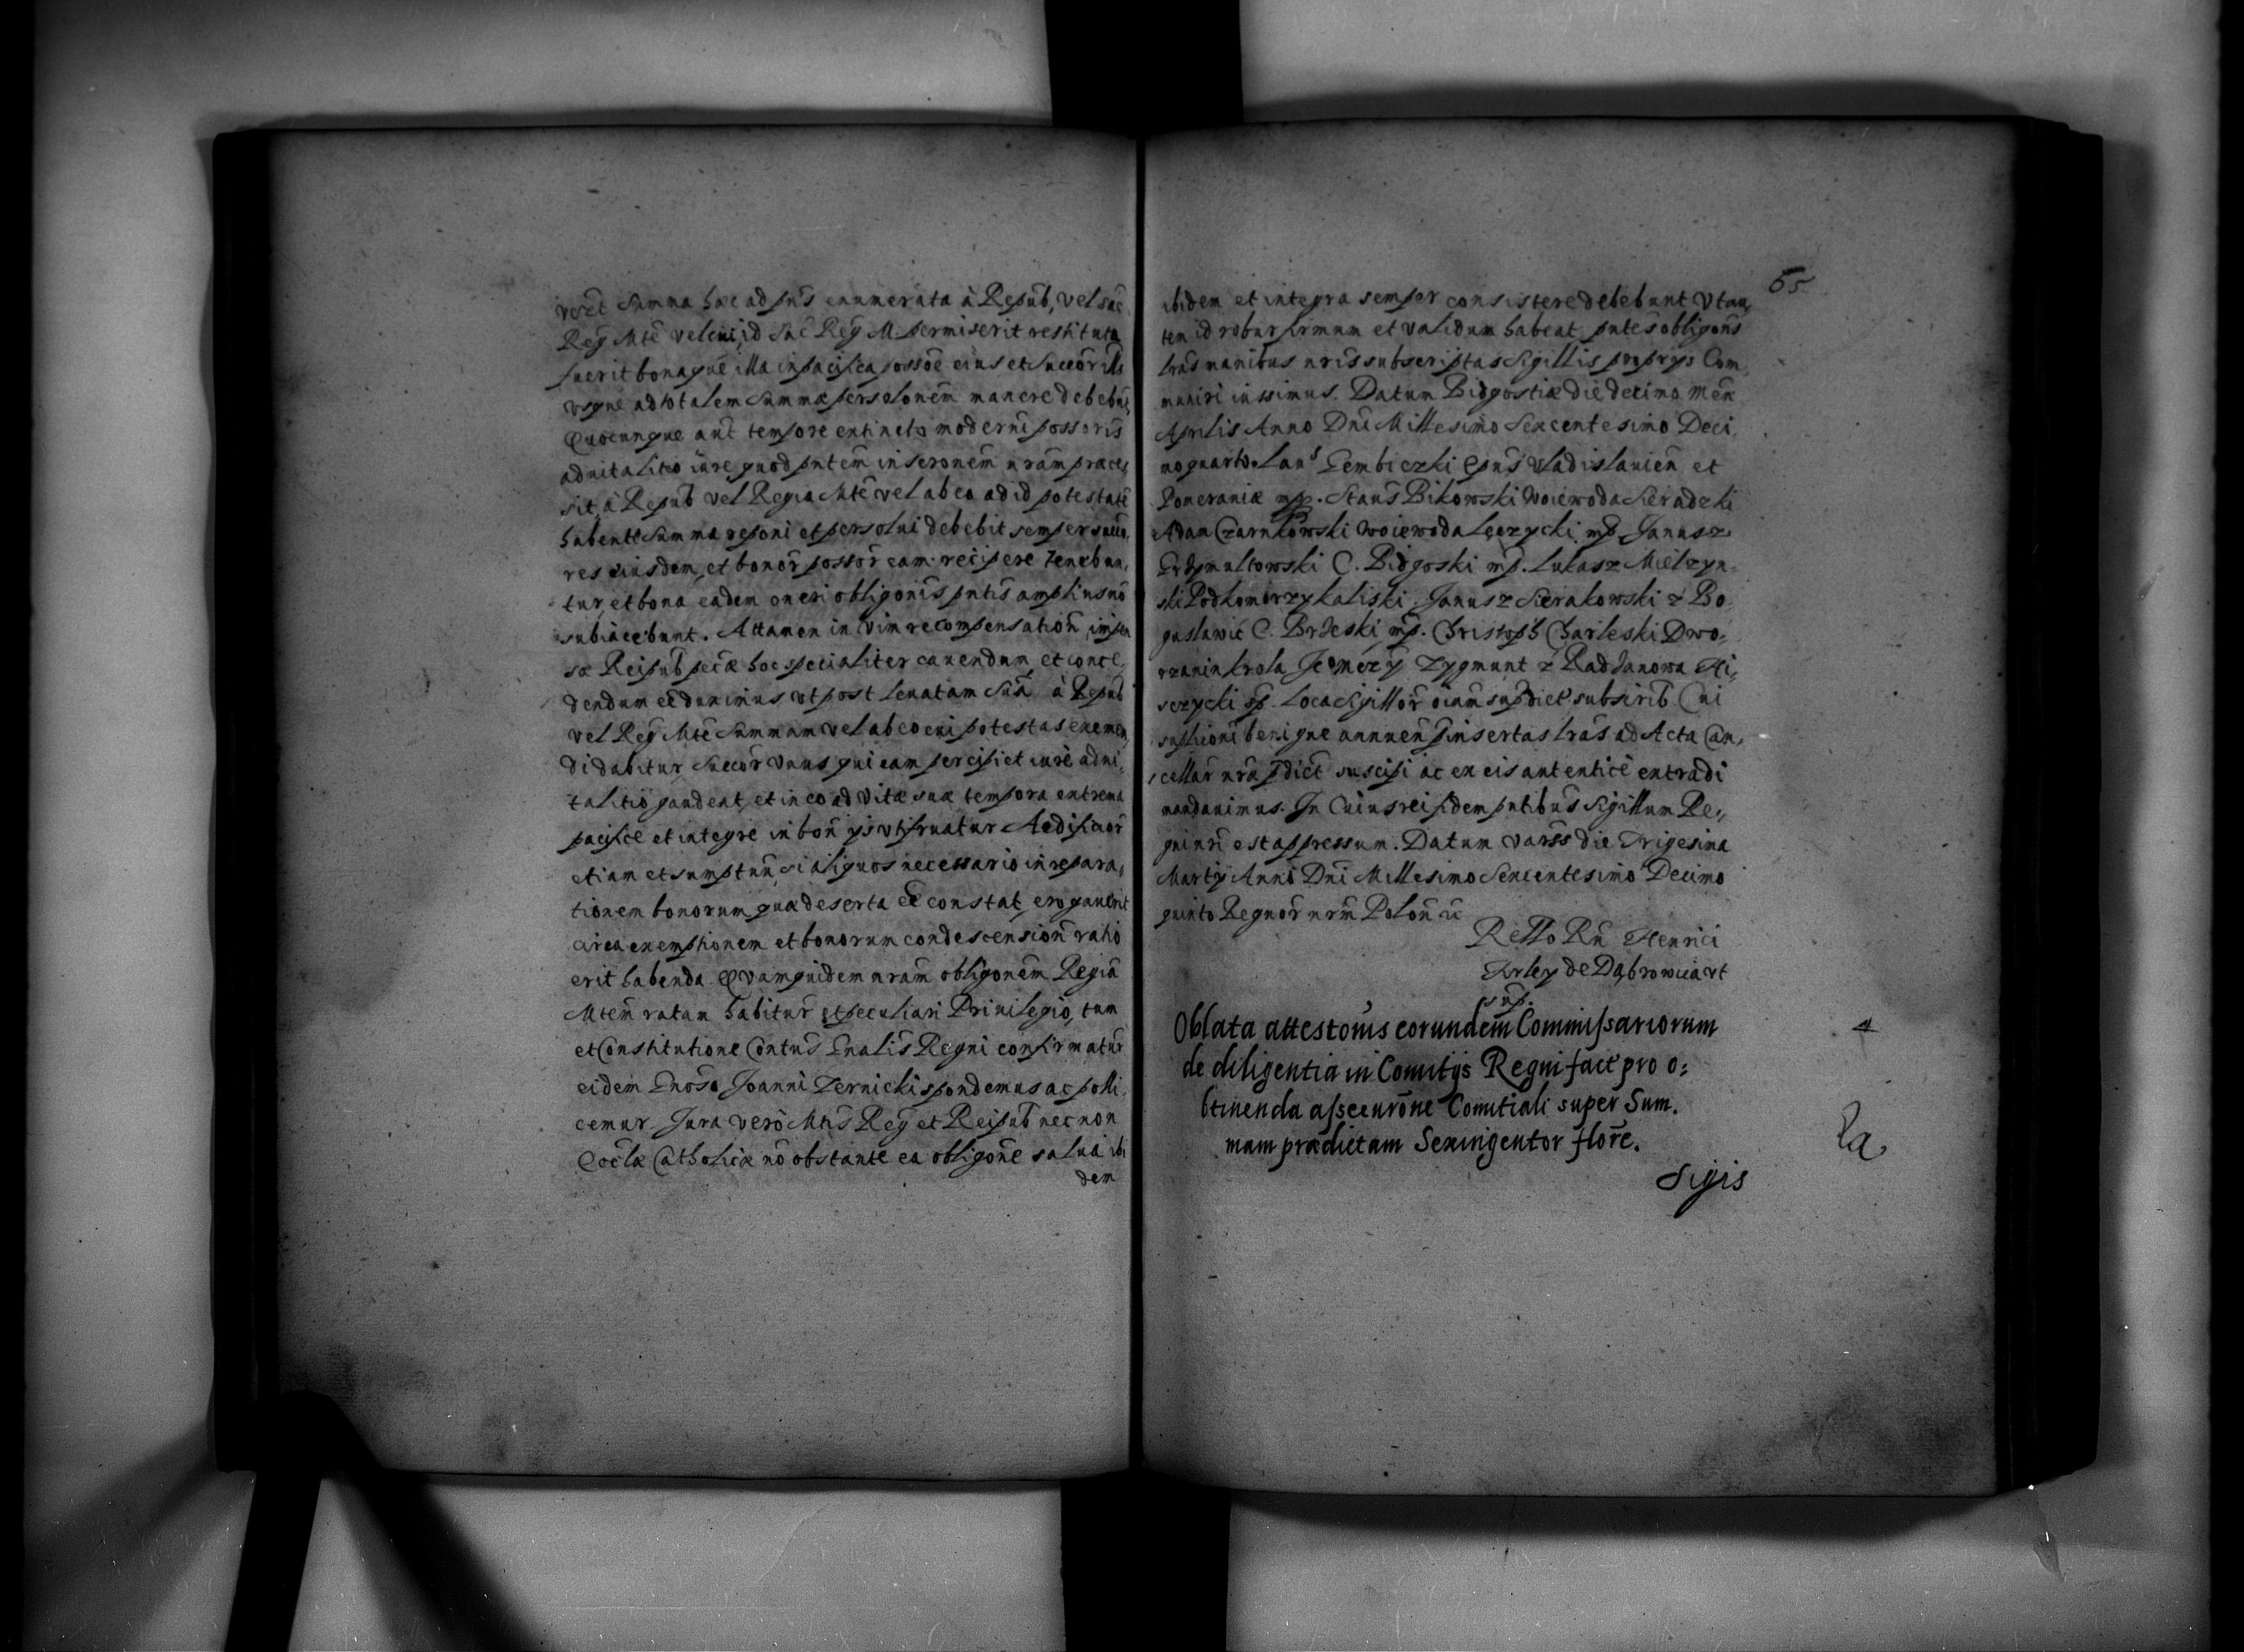 verẽt Summa hæc ad pñs enumerata à Repub, vel sac
Reg Mte vel cui, id Sac Reg M. permiserit restituta
fuerit bonaque illa in pacifica possoẽ eius et Succõr illi
vsque ad totalem Summæ persolonẽm manere debebũt
Quocunque aut tempore extincto moderni possoris
aduitalitio iure quod pntẽm inscronẽm nrãm præces,
sit, à Repub vel Regia Mte vel ab eo ad id potestatẽ
habente Summa reponi et persolui debebit semper succo,
res eiusdem, et bonõr possõr eam recipere tenebun,
tur et bona eadem oneri obligonis pntis amplius nõ
subiacebunt. Attamen in vim recompensation impen
sæ Reipub pecæ hoc specialiter cauendum et conce,
dendum eẽ duximus vt post leuatam Suã à Repub
vel Reg Mte Summam vel ab eo cui potestas exemen,
di dabitur Succõr vnus qui eam percipiet iure adui,
talitio gaudeat, et in eo ad vitæ suæ tempora extrema
pacifice et integre in bon ijs vtifruatur Aedificiõr
etiam et sumptuũ si aliquos necessario in repara,
tionem bonorum quæ deserta eẽ constat, erogauerit
circa exemptionem et bonorum condescensioñ ratio
erit habenda Quamquidem nram obligonẽm Regia
Mtem ratam habitur et peculiari Priuilegio, tum
et Constitutione Contus Gnalis Regni confirmatur
eidem Gnoso Joanni Zernicki spondemus ac polli,
cemur. Jura verò Mtis Reg et Reipub nec non
Eccłæ Catholicæ nõ obstante ea obligone salua ibi
dem
65
ibidem et integra semper consistere debebunt Vt au,
tem id robur firmum et validum habeat pntes obligonis
lras manibus nris subscriptas Sigillis proprijs Com,
muniri iussimus. Datum Bidgostiæ die decimo Men
Aprilis Anno Dni Millesimo Sexcentesimo Deci,
moquarto. Laus Gembiczki Epus Vladislauien et
Pomeraniæ mp. Staus Bikowski Woiewoda Sieradzki
Adam Czarnkowski Woiewoda Lęczycki mp. Janusz
Grzymultowski C. Bidgoski mp. Lukasz Mielzyn,
ski Podkomorzy kaliski. Janusz Sierakowski z Bo
guslawic C. Brzeski mp. Christoph Charleski Dwo,
rzanin krola Jeomczy Zygmunt z Raddanowa
sczycki mp. Loca Sigillor oiam supdict subscrib Cui
suplicõni benigne annuen pinsertas lras ad Acta Can,
cellar nræ pdict suscipi ac ex eis autentice extradi
mandauimus. In Cuius rei fidem pntibus Sigillum Re,,
gni nri est appressum. Datum Varss die Trigesima
Martij Anni Dni Millesimo Sexcentesimo Decimo
quinto Regnor nrm Polon
Rello Rñ Henrici
Firley de Dąbrowica vt
sup.
Oblata attestonis eorundem Commissariorum
de diligentia in Comitijs Regni fact pro o:
btinenda assecurone Comitiali super Sum.
mam prædictam Sexingentor flore.
Sigis
4